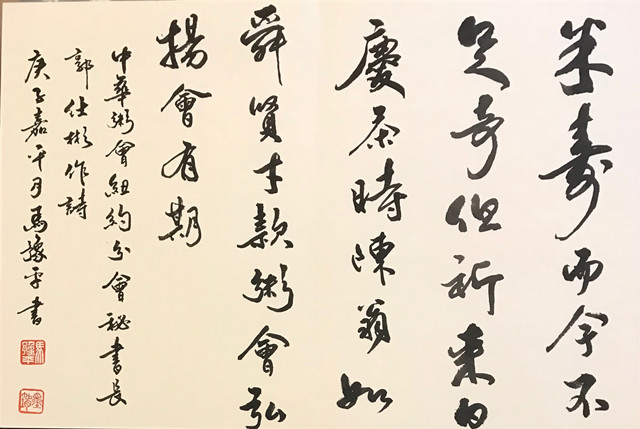 米壽而今不
足奇但祈來日
慶茶時陳翁如
舜賢才款粥會弘
揚會有期
中華粥會紐約分會秘書長
郭仕彬作詩
庚子嘉平月馬豫平書